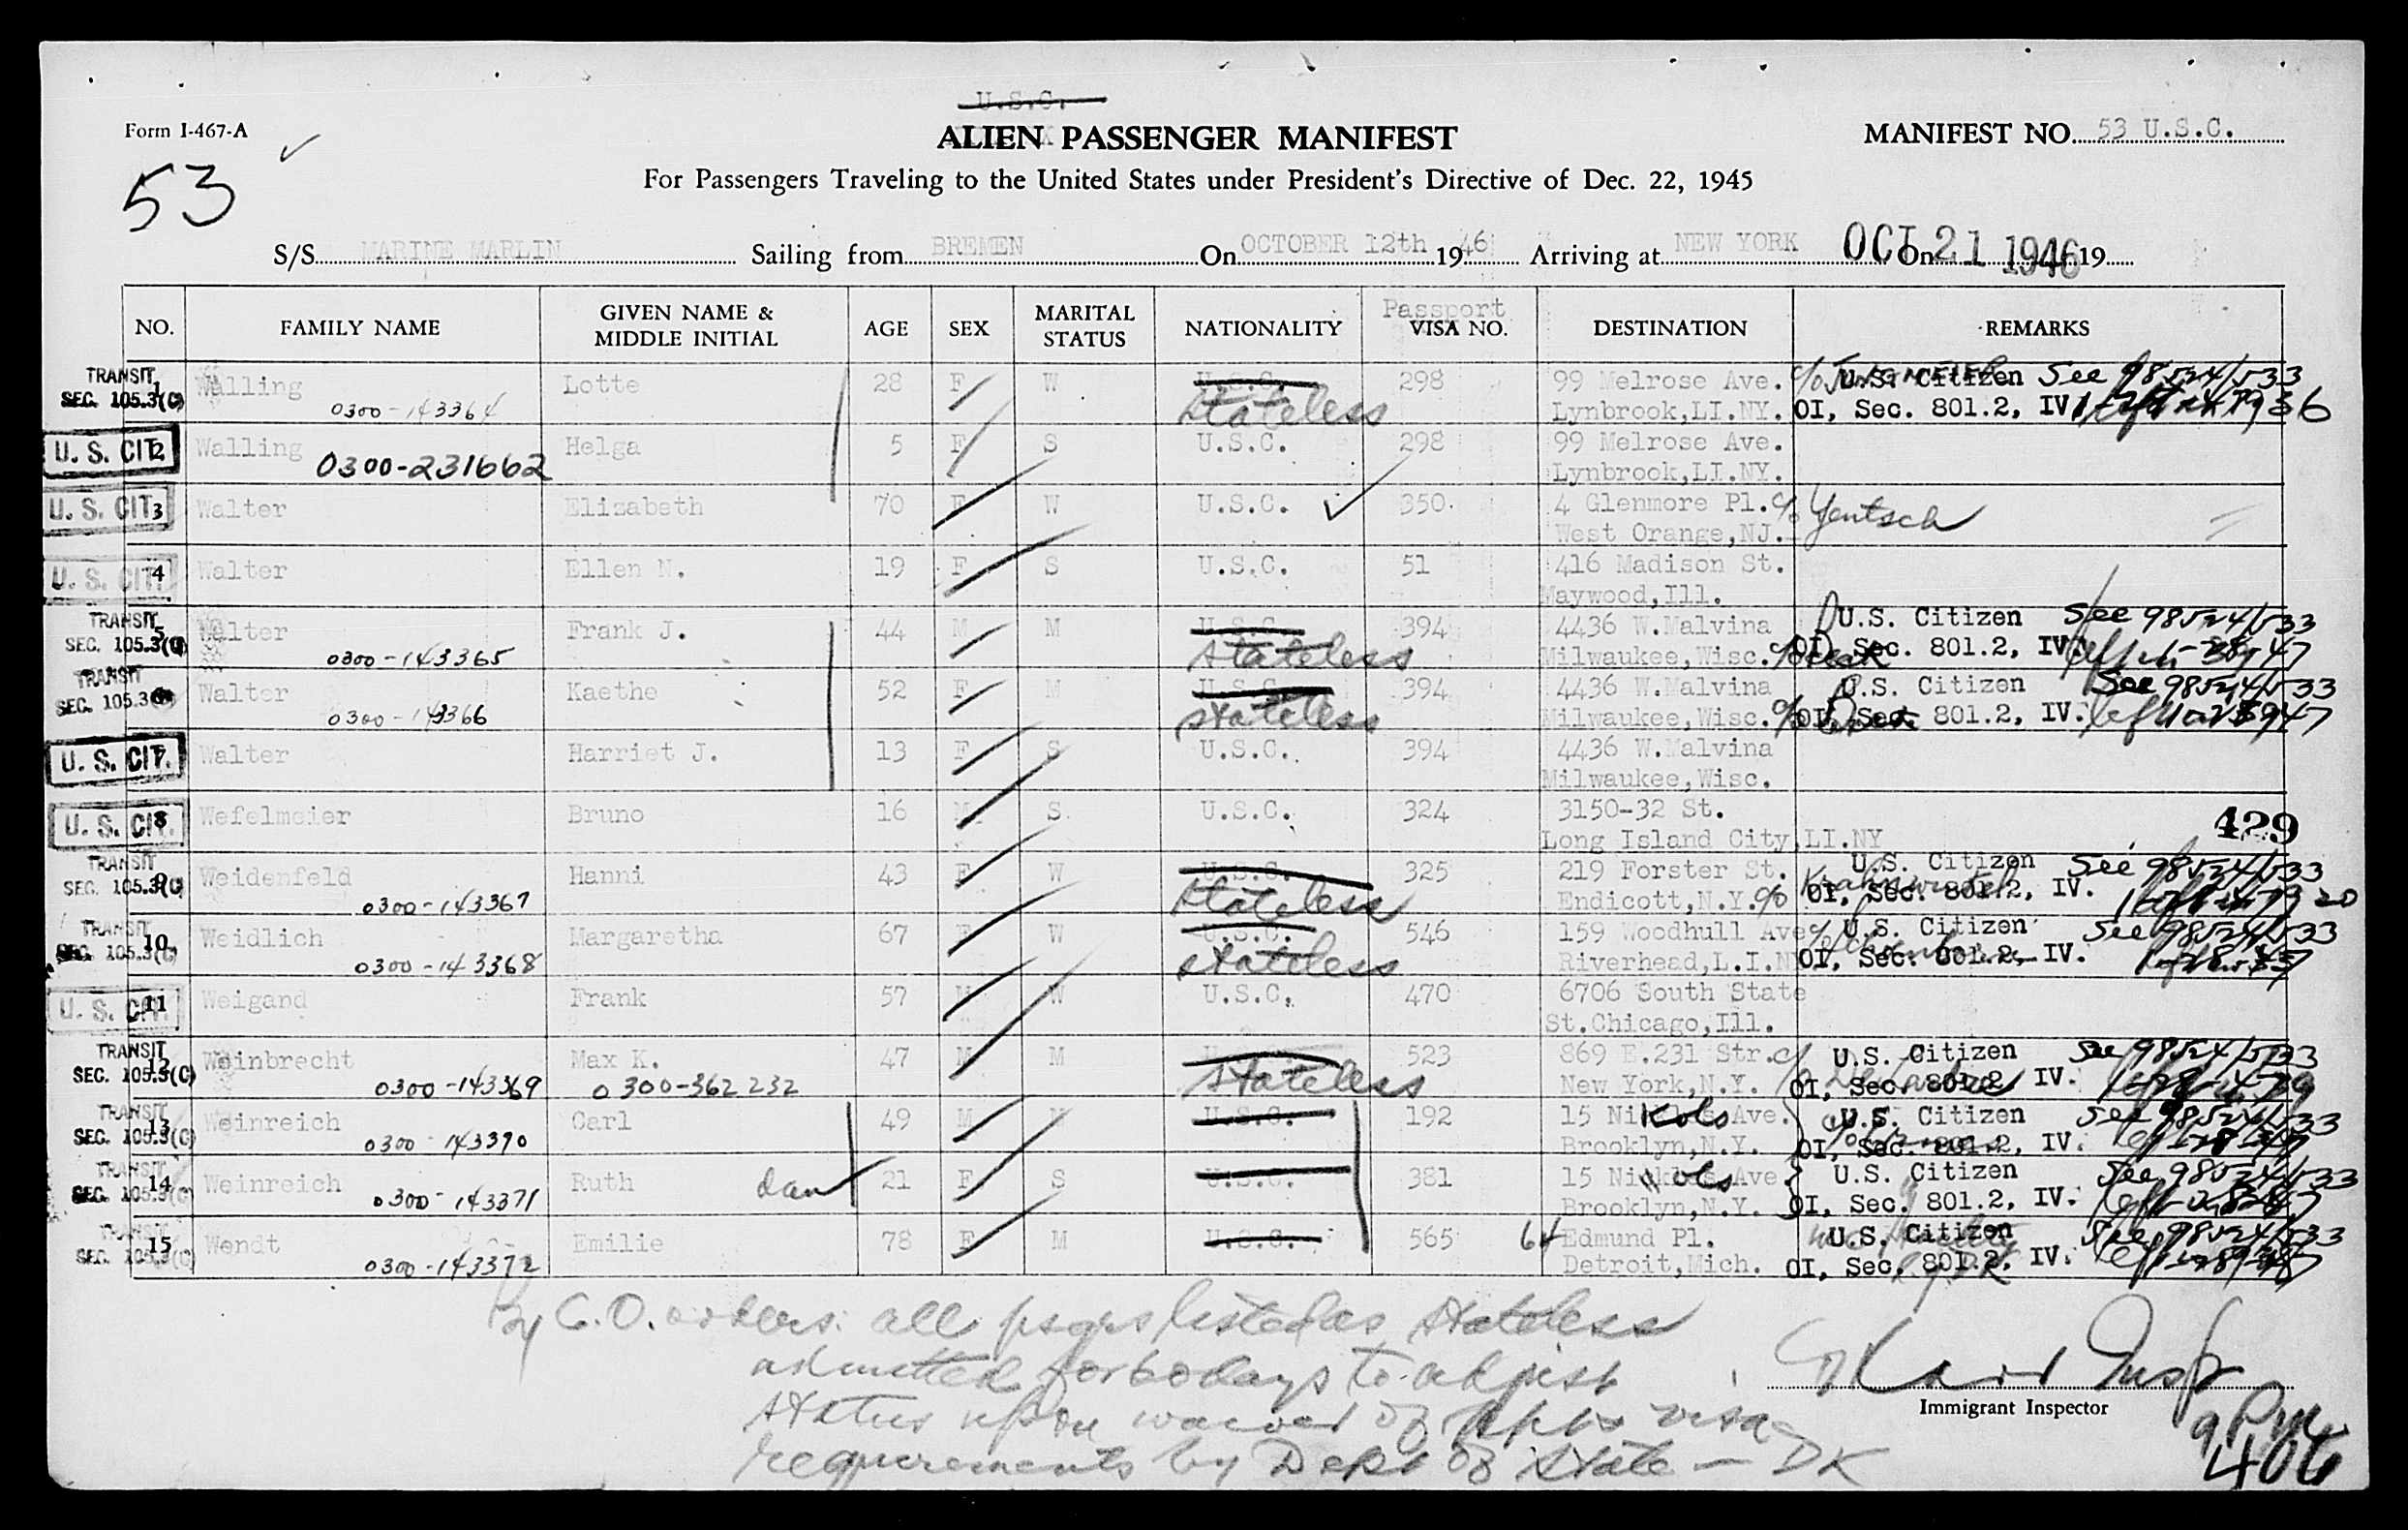 U.S.C.
Form I-467-A
ALIEN PASSENGER MANIFEST
MANIFEST NO. 53 U.S.C.
53
For Passengers Traveling to the United States under President's Directive of Dec. 22, 1945
S/S MARINE MARLIN Sailing from BREMEN On OCTOBER 12th 1946 Arriving at NEW YORK On OCT 21 1946 19
NO. FAMILY NAME GIVEN NAME & MIDDLE INITIAL AGE SEX MARITAL STATUS NATIONALITY Passport VISA NO. DESTINATION REMARKS
TRANSIT 1 Walling Lotte 28 F W U.S.C. 298 99 Melrose Ave. c/o U.S. Citizen See 98524/533
SEC. 105.3(C) 0300-143364 Stateless Lynbrook,LI.NY. OI, Sec. 801.2, IV
U. S. CIT. 2 Walling Helga 5 F S U.S.C. 298 99 Melrose Ave.
0300-231662 Lynbrook,LI.NY.
U. S. CIT. 3 Walter Elizabeth 70 F W U.S.C. 350 4 Glenmore Pl. c/o Yentsch
West Orange,NJ.
U. S. CIT. 4 Walter Ellen N. 19 F S U.S.C. 51 416 Madison St.
Maywood,Ill.
TRANSIT 5 Walter Frank J. 44 M M U.S.C. 394 4436 W.Malvina U.S. Citizen See 98524/533
SEC. 105.3(C) 0300-143365 Stateless Milwaukee,Wisc. c/o OI, Sec. 801.2, IV.
TRANSIT 6 Walter Kaethe 52 F M U.S.C. 394 4436 W.Malvina U.S. Citizen See 98524/533
SEC. 105.3(C) 0300-143366 Stateless Milwaukee,Wisc. c/o OI, Sec. 801.2, IV.
U. S. CIT. 7 Walter Harriet J. 13 F S U.S.C. 394 4436 W.Malvina
Milwaukee,Wisc.
U. S. CIT. 8 Wefelmeier Bruno 16 M S U.S.C. 324 3150-32 St. 429
Long Island City,LI.NY
TRANSIT 9 Weidenfeld Hanni 43 F W U.S.C. 325 219 Forster St. U.S. Citizen See 98524/533
SEC. 105.3(C) 0300-143367 Stateless Endicott,N.Y. c/o OI, Sec. 801.2, IV.
TRANSIT 10 Weidlich Margaretha 67 F W U.S.C. 546 159 Woodhull Ave c/o U.S. Citizen See 98524/533
SEC. 105.3(C) 0300-143368 Stateless Riverhead,L.I.N OI, Sec. 801.2, IV.
U. S. CIT. 11 Weigand Frank 57 M W U.S.C. 470 6706 South State
St.Chicago,Ill.
TRANSIT 12 Weinbrecht Max K. 47 M M 523 869 E.231 Str. U.S. Citizen See 98524/533
SEC. 105.3(C) 0300-143369 0300-362232 Stateless New York,N.Y. c/o OI, Sec. 801.2, IV.
TRANSIT 13 Weinreich Carl 49 M M U.S.C. 192 15 Nickols Ave. U.S. Citizen See 98524/533
SEC. 105.3(C) 0300-143370 Brooklyn,N.Y. c/o OI, Sec. 801.2, IV.
TRANSIT 14 Weinreich Ruth dau 21 F S U.S.C. 381 15 Nickols Ave U.S. Citizen See 98524/533
SEC. 105.3(C) 0300-143371 Brooklyn,N.Y. OI, Sec. 801.2, IV.
TRANSIT 15 Wendt Emilie 78 F M U.S.C. 565 64 Edmund Pl. U.S. Citizen See 98524/533
SEC. 105.3(C) 0300-143372 Detroit,Mich. OI, Sec. 801.2, IV.
By C.O. orders all psgrs listed as Stateless
admitted for 60 days to adjust
status upon waiver of ppt visa
requirements by Dept of State - DK
Insp
Immigrant Inspector
9 PM
406